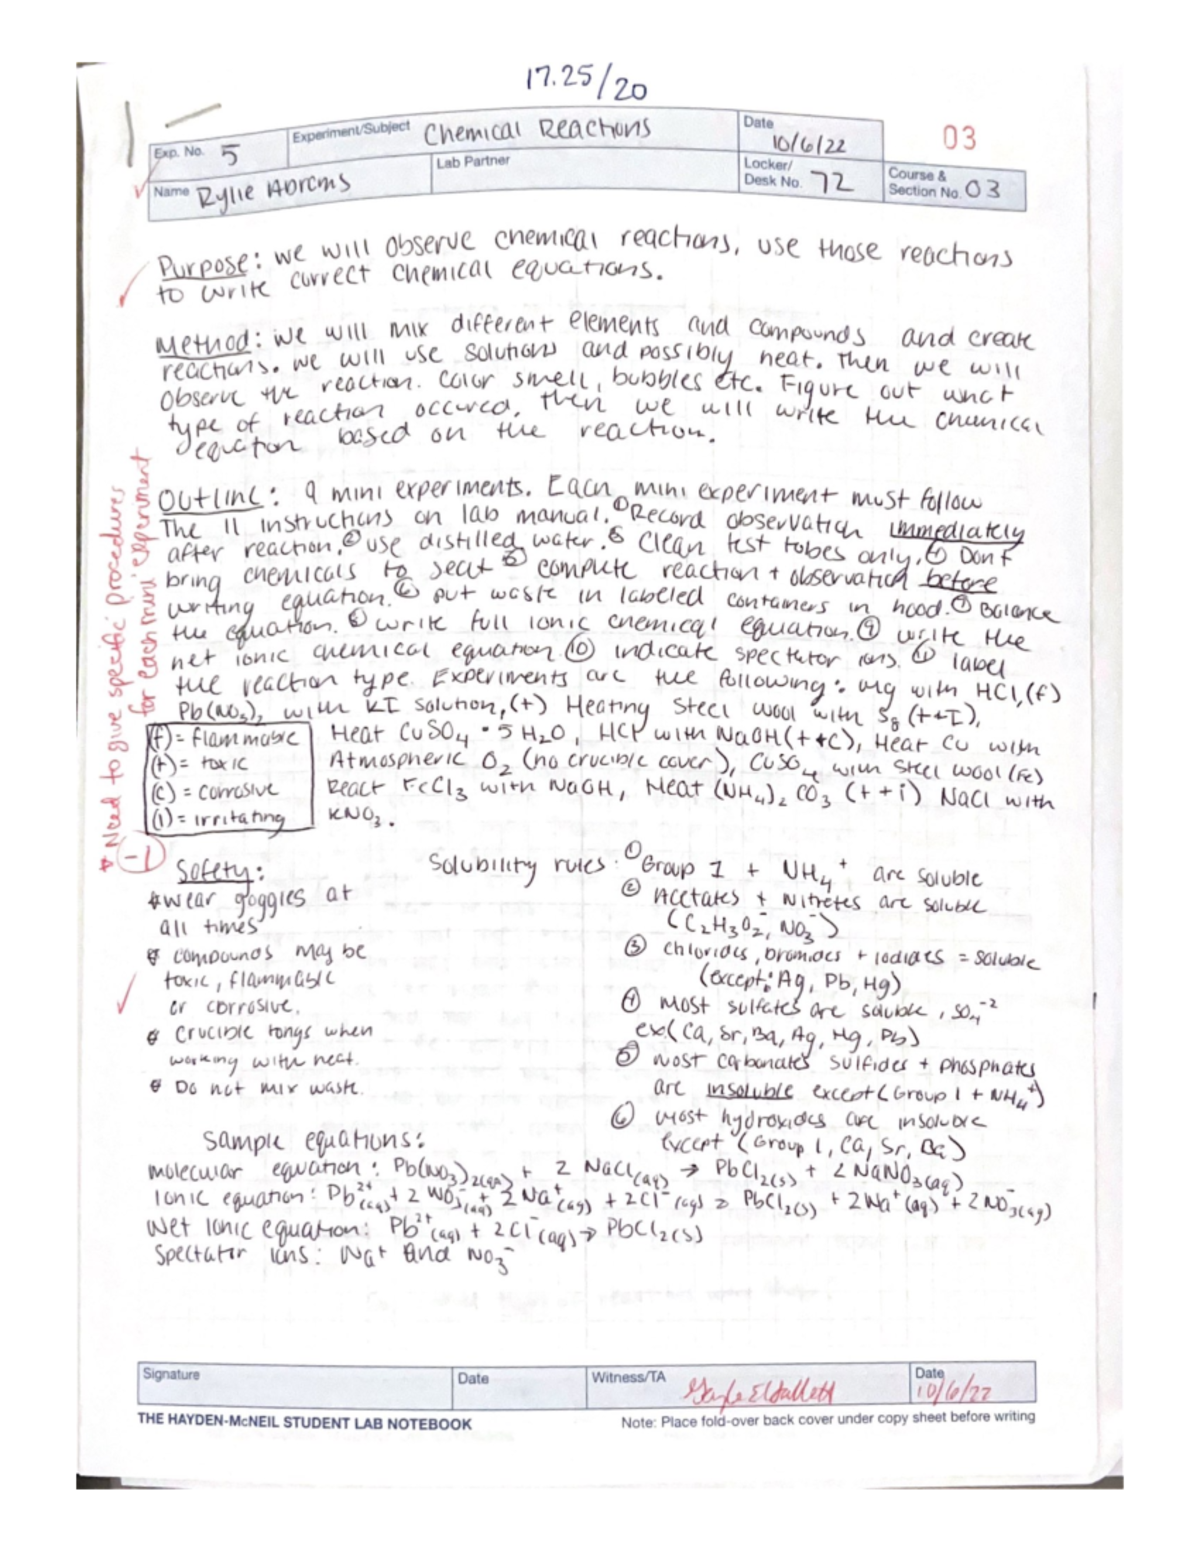 17.25/20
Exp. No. 5
Experiment/Subject Chemical Reactions
Date 10/6/22
03
Name Rylie Abrams
Lab Partner
Locker/
Desk No. 72
Course &
Section No. 03
Purpose: we will observe chemical reactions, use those reactions
to write correct chemical equations.
Method: we will mix different elements and compounds and create
reactions. we will use solutions and possibly heat. Then we will
Observe the reaction. Color smell, bubbles etc. Figure out what
type of reaction occured, then we will write the chemical
equation based on the reaction.
* Need to give specific procedures
for each mini experiment
-1
Outline: 9 mini experiments. Each mini experiment must follow
The 11 instructions on lab manual. ① Record observation immediately
after reaction. ② use distilled water. ③ Clean test tubes only. ④ Don't
bring chemicals to seat ⑤ compute reaction + observation before
writing equation. ⑥ put waste in labeled containers in hood. ⑦ Balance
the equation. ⑧ write full ionic chemical equation. ⑨ write the
net ionic chemical equation ⑩ indicate spectator ions. ⑪ label
the reaction type. Experiments are the following: Mg with HCl, (f)
Pb(NO₃)₂ with KI solution, (t) Heating Steel wool with S₈ (t+I),
Heat CuSO₄ • 5 H₂O, HCl with NaOH (t+C), Heat Cu with
Atmospheric O₂ (no crucible cover), CuSO₄ with Steel wool (Fe)
React FeCl₃ with NaOH, Heat (NH₄)₂ CO₃ (t+i) NaCl with
KNO₃.
(f) = flammable
(t) = toxic
(c) = corrosive
(i) = irritating
Safety:
* wear goggles at
all times
* compounds may be
toxic, flammable
or corrosive.
* Crucible tongs when
working with heat.
* Do not mix waste.
Solubility rules: ① Group 1 + NH₄⁺ are soluble
② Acetates + Nitretes are soluble
(C₂H₃O₂⁻, NO₃⁻)
③ chlorides, bromides + Iodides = soluble
(except: Ag, Pb, Hg)
④ most sulfates are soluble, SO₄⁻²
ex(Ca, Sr, Ba, Ag, Hg, Pb)
⑤ most carbonates sulfides + phosphates
are insoluble except (Group 1 + NH₄⁺)
⑥ most hydroxides are insoluble
Except (Group 1, Ca, Sr, Ba)
Sample equations:
molecular equation: Pb(NO₃)₂(aq) + 2 NaCl(aq) → PbCl₂(s) + 2NaNO₃(aq)
Ionic equation: Pb²⁺(aq) + 2 NO₃⁻(aq) + 2Na⁺(aq) + 2Cl⁻(aq) → PbCl₂(s) + 2Na⁺(aq) + 2NO₃⁻(aq)
Net Ionic equation: Pb²⁺(aq) + 2Cl⁻(aq) → PbCl₂(s)
Spectator ions: Na⁺ and NO₃⁻
Signature
Date
Witness/TA
Date 10/6/22
THE HAYDEN-McNEIL STUDENT LAB NOTEBOOK
Note: Place fold-over back cover under copy sheet before writing